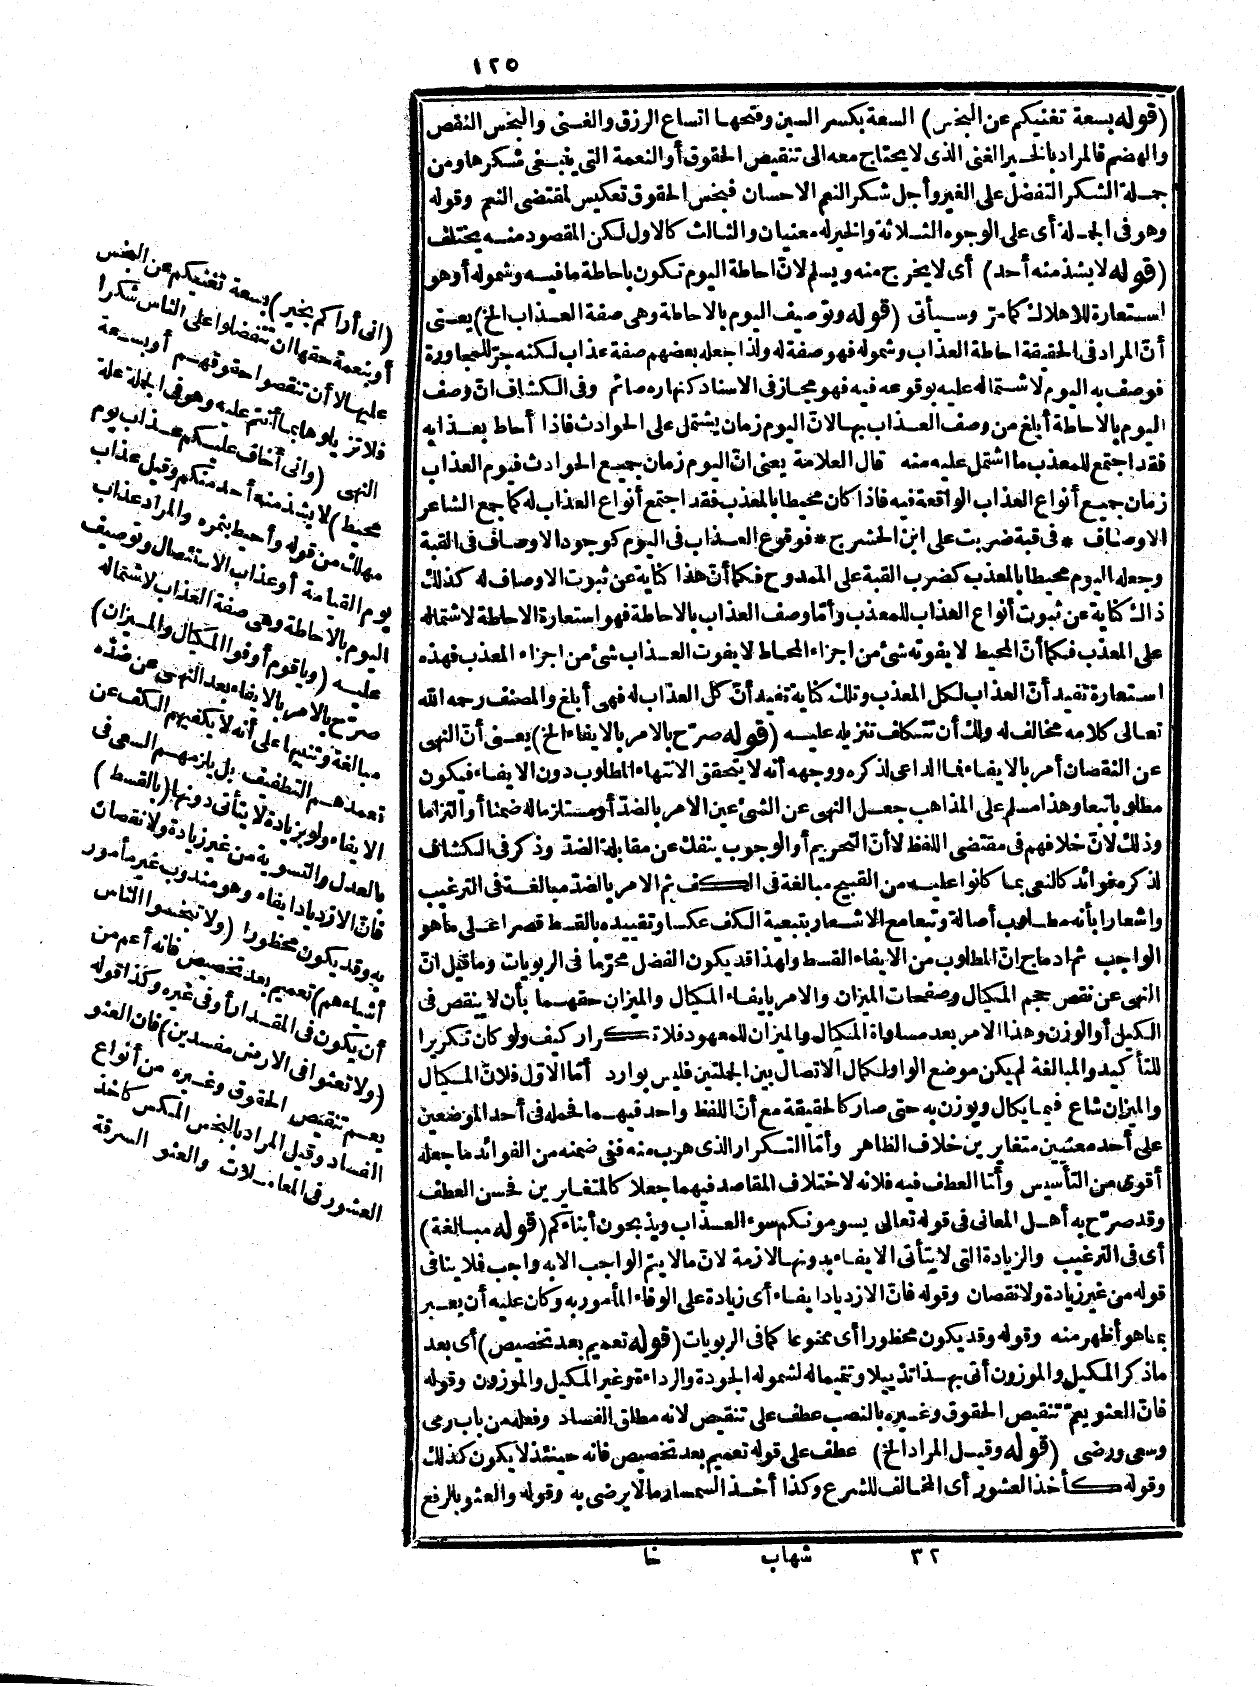 ١٢٥
(قوله بسعة تغنيكم عن البخس) السعة بكسر السين وفتحها اتساع الرزق والغنى والبخس النقص
والهضم فالمراد بالخير الغنى الذى لا يحتاج معه الى تنقيص الحقوق أو النعمة التى ينبغى شكرها ومن
جملة الشكر التفضل على الغير وأجل شكر النعم الاحسان فبخس الحقوق تعكيس لمقتضى النعم وقوله
وهو فى الجملة أى على الوجوه الثلاثة والخير له معنيان والثالث كالاول لكن المقصود منه يختلف
(قوله لا يشذ منه أحد) أى لا يخرج منه ويسلم لانّ احاطة اليوم تكون باحاطة ما فيه وشموله أو هو
استعارة للاهلاك كما مرّ وسيأتى (قوله وتوصيف اليوم بالاحاطة وهى صفة العذاب الخ) يعنى
أنّ المراد فى الحقيقة احاطة العذاب وشموله فهو صفة له ولذا جعله بعضهم صفة عذاب لكنه جرّ للمجاورة
فوصف به اليوم لاشتماله عليه بوقوعه فيه فهو مجاز فى الاسناد كنهاره صائم وفى الكشاف انّ وصف
اليوم بالاحاطة أبلغ من وصف العذاب بها لانّ اليوم زمان يشتمل على الحوادث فاذا أحاط بعذابه
فقد اجتمع للمعذب ما اشتمل عليه منه قال العلامة يعنى انّ اليوم زمان جميع الحوادث فيوم العذاب
زمان جميع أنواع العذاب الواقعة فيه فاذا كان محيطا بالمعذب فقد اجتمع أنواع العذاب له كما جمع الشاعر
الاوصاف * فى قبة ضربت على ابن الحشرج * فوقوع العذاب فى اليوم كوجود الاوصاف فى القبة
وجعله اليوم محيطا بالمعذب كضرب القبة على الممدوح فكما أنّ هذا كناية عن ثبوت الاوصاف له كذلك
ذاك كناية عن ثبوت أنواع العذاب للمعذب وأمّا وصف العذاب بالاحاطة فهو استعارة الاحاطة لاشتماله
على المعذب فكما أنّ المحيط لا يفوته شئ من اجزاء المحاط لا يفوت العذاب شئ من اجزاء المعذب فهذه
استعارة تفيد أنّ العذاب لكل المعذب وتلك كناية تفيد أنّ كل العذاب له فهى أبلغ والمصنف رحمه الله
تعالى كلامه مخالف له ولك أن تتكلف تنزيله عليه (قوله صرّح بالامر بالايفاء الخ) يعنى أنّ النهى
عن النقصان أمر بالايفاء فما الداعى لذكره ووجهه أنه لا يتحقق الانتهاء المطلوب دون الايفاء فيكون
مطلوبا تبعا وهذا مسلم على المذاهب جعل النهى عن الشئ عين الامر بالضدّ أو مستلزما له ضمنا أو التزاما
وذلك لانّ خلافهم فى مقتضى اللفظ لا أنّ التحريم أو الوجوب ينفك عن مقابلة الضدّ وذكر فى الكشاف
لذكره فوائد كالنهى بما كانوا عليه من القبيح مبالغة فى الكف ثم الامر بالضدّ مبالغة فى الترغيب
واشعارا بأنه مطلوب أصالة وتبعا مع الاشعار بتبعية الكف عكسا وتقييده بالقسط قصرا على ما هو
الواجب ثم ادماج انّ المطلوب من الايفاء القسط ولهذا قد يكون الفضل محرّما فى الربويات وما قيل انّ
النهى عن نقص حجم المكيال وصفحات الميزان والامر بايفاء المكيال والميزان حقهما بأن لا ينقص فى
الكيل أو الوزن وهذا الامر بعد مساواة المكيال والميزان للمعهود فلا تكرار كيف ولو كان تكريرا
للتأكيد والمبالغة لم يكن موضع الواو لكمال الاتصال بين الجملتين فليس بوارد أمّا الاوّل فلانّ المكيال
والميزان شاع فيما يكال ويوزن به حتى صار كالحقيقة مع أنّ اللفظ واحد فيهما فحمله فى أحد الموضعين
على أحد معنيين متغايرين خلاف الظاهر وأمّا التكرار الذى هرب منه ففى ضمنه من الفوائد ما جعله
أقوى من التأسيس وأمّا العطف فيه فلانه لاختلاف المقاصد فيهما جعلا كالمتغايرين فحسن العطف
وقد صرّح به أهل المعانى فى قوله تعالى يسومونكم سوء العذاب ويذبحون أبناءكم (قوله مبالغة)
أى فى الترغيب والزيادة التى لا يتأتى الايفاء بدونها لازمة لانّ ما لا يتمّ الواجب الا به واجب فلا ينافى
قوله من غير زيادة ولا نقصان وقوله فانّ الازدياد ايفاء أى زيادة على الوفاء المأمور به وكان عليه أن يعبر
بما هو أظهر منه وقوله وقد يكون محظورا أى ممنوعا كما فى الربويات (قوله تعميم بعد تخصيص) أى بعد
ما ذكر المكيل والموزون أتى بهذا تذييلا وتتميما له لشموله الجودة والرداءة وغير المكيل والموزون وقوله
فانّ العثو يعمّ تنقيص الحقوق وغيره بالنصب عطف على تنقيص لانه مطلق الفساد وفعله من باب رمى
وسعى ورضى (قوله وقيل المراد الخ) عطف على قوله تعميم بعد تخصيص فانه حينئذ لا يكون كذلك
وقوله كأخذ العشور أى المخالف للشرع وكذا أخذ السمسار ما لا يرضى به وقوله والعثو بالرفع
(انى أراكم بخير) بسعة تغنيكم عن البخس
أو بنعمة حقها ان تتفضلوا على الناس شكرا
عليها لا أن تنقصوا حقوقهم أو بسعة
فلا تزيلوها بما أنتم عليه وهو فى الجملة علة
النهى (وانى أخاف عليكم عذاب يوم
محيط) لا يشذ منه أحد منكم وقيل عذاب
مهلك من قوله وأحيط بثمره والمراد عذاب
يوم القيامة أو عذاب الاستئصال وتوصيف
اليوم بالاحاطة وهى صفة العذاب لاشتماله
عليه (ويا قوم أوفوا المكيال والميزان)
صرّح بالامر بالايفاء بعد النهى عن ضدّه
مبالغة وتنبيها على أنه لا يكفيهم الكف عن
تعمدهم التطفيف بل يلزمهم السعى فى
الايفاء ولو بزيادة لا يتأتى دونها (بالقسط)
بالعدل والتسوية من غير زيادة ولا نقصان
فانّ الازدياد ايفاء وهو مندوب غير مأمور
به وقد يكون محظورا (ولا تبخسوا الناس
أشياءهم) تعميم بعد تخصيص فانه أعم من
أن يكون فى المقدار أو فى غيره وكذا قوله
(ولا تعثوا فى الارض مفسدين) فان العثو
يعم تنقيص الحقوق وغيره من أنواع
الفساد وقيل المراد بالبخس المكس كأخذ
العشور فى المعاملات والعثو السرقة
٣٢ شهاب خا